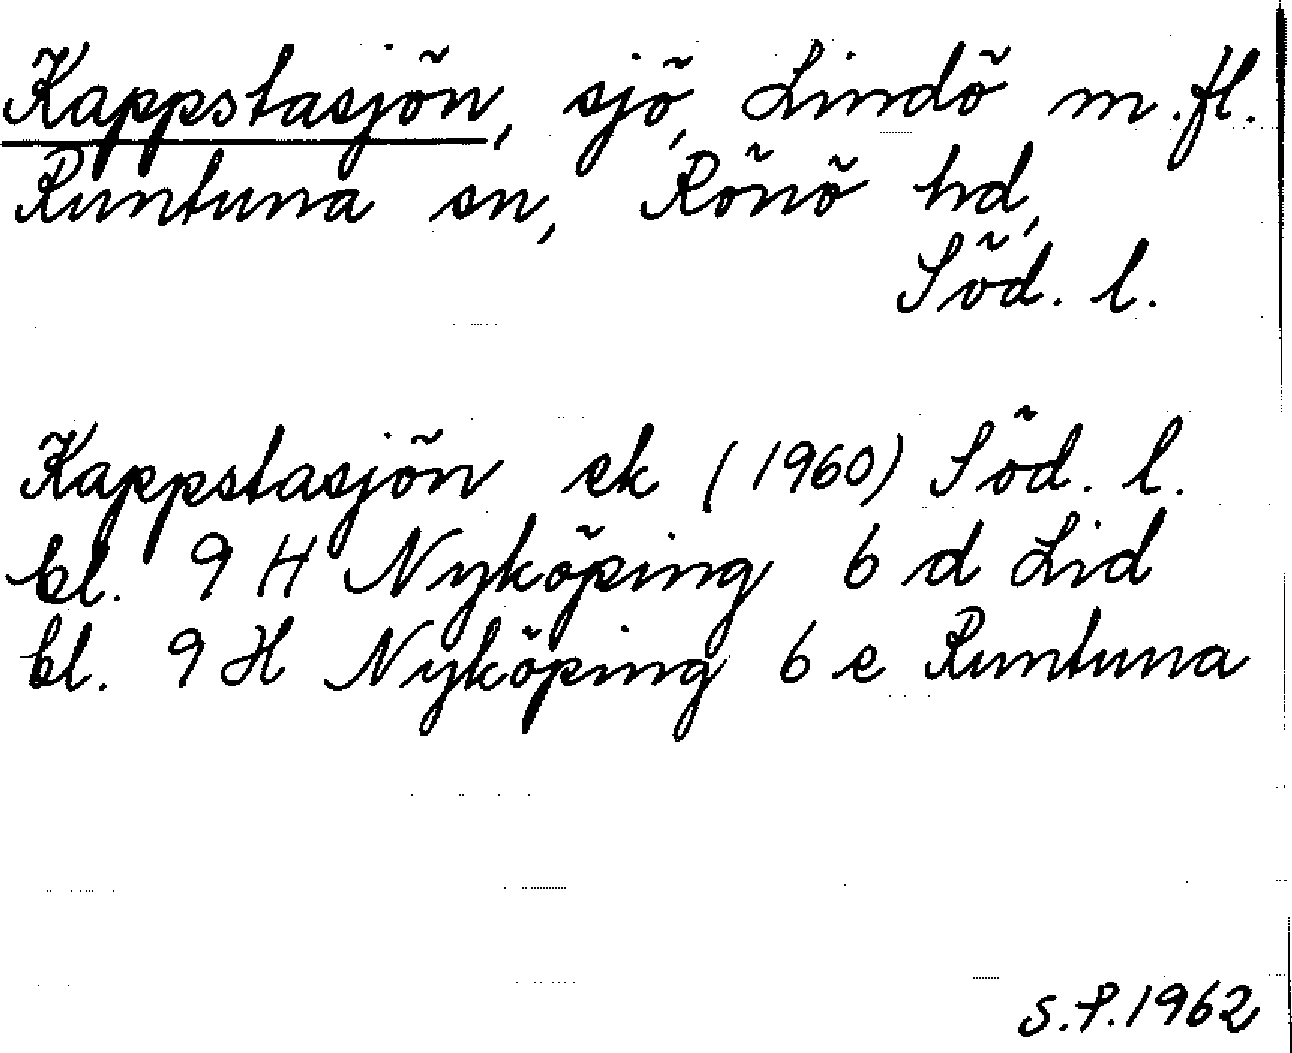 Kappstasjön, sjö, Lindö m.fl.
Runtuna sn, Rönö hd,
Söd. l.
Kappstasjön ek (1960) Söd. l.
bl. 9 H Nyköping 6 d Lid
bl. 9 H Nyköping 6 e Runtuna
S.P.1962